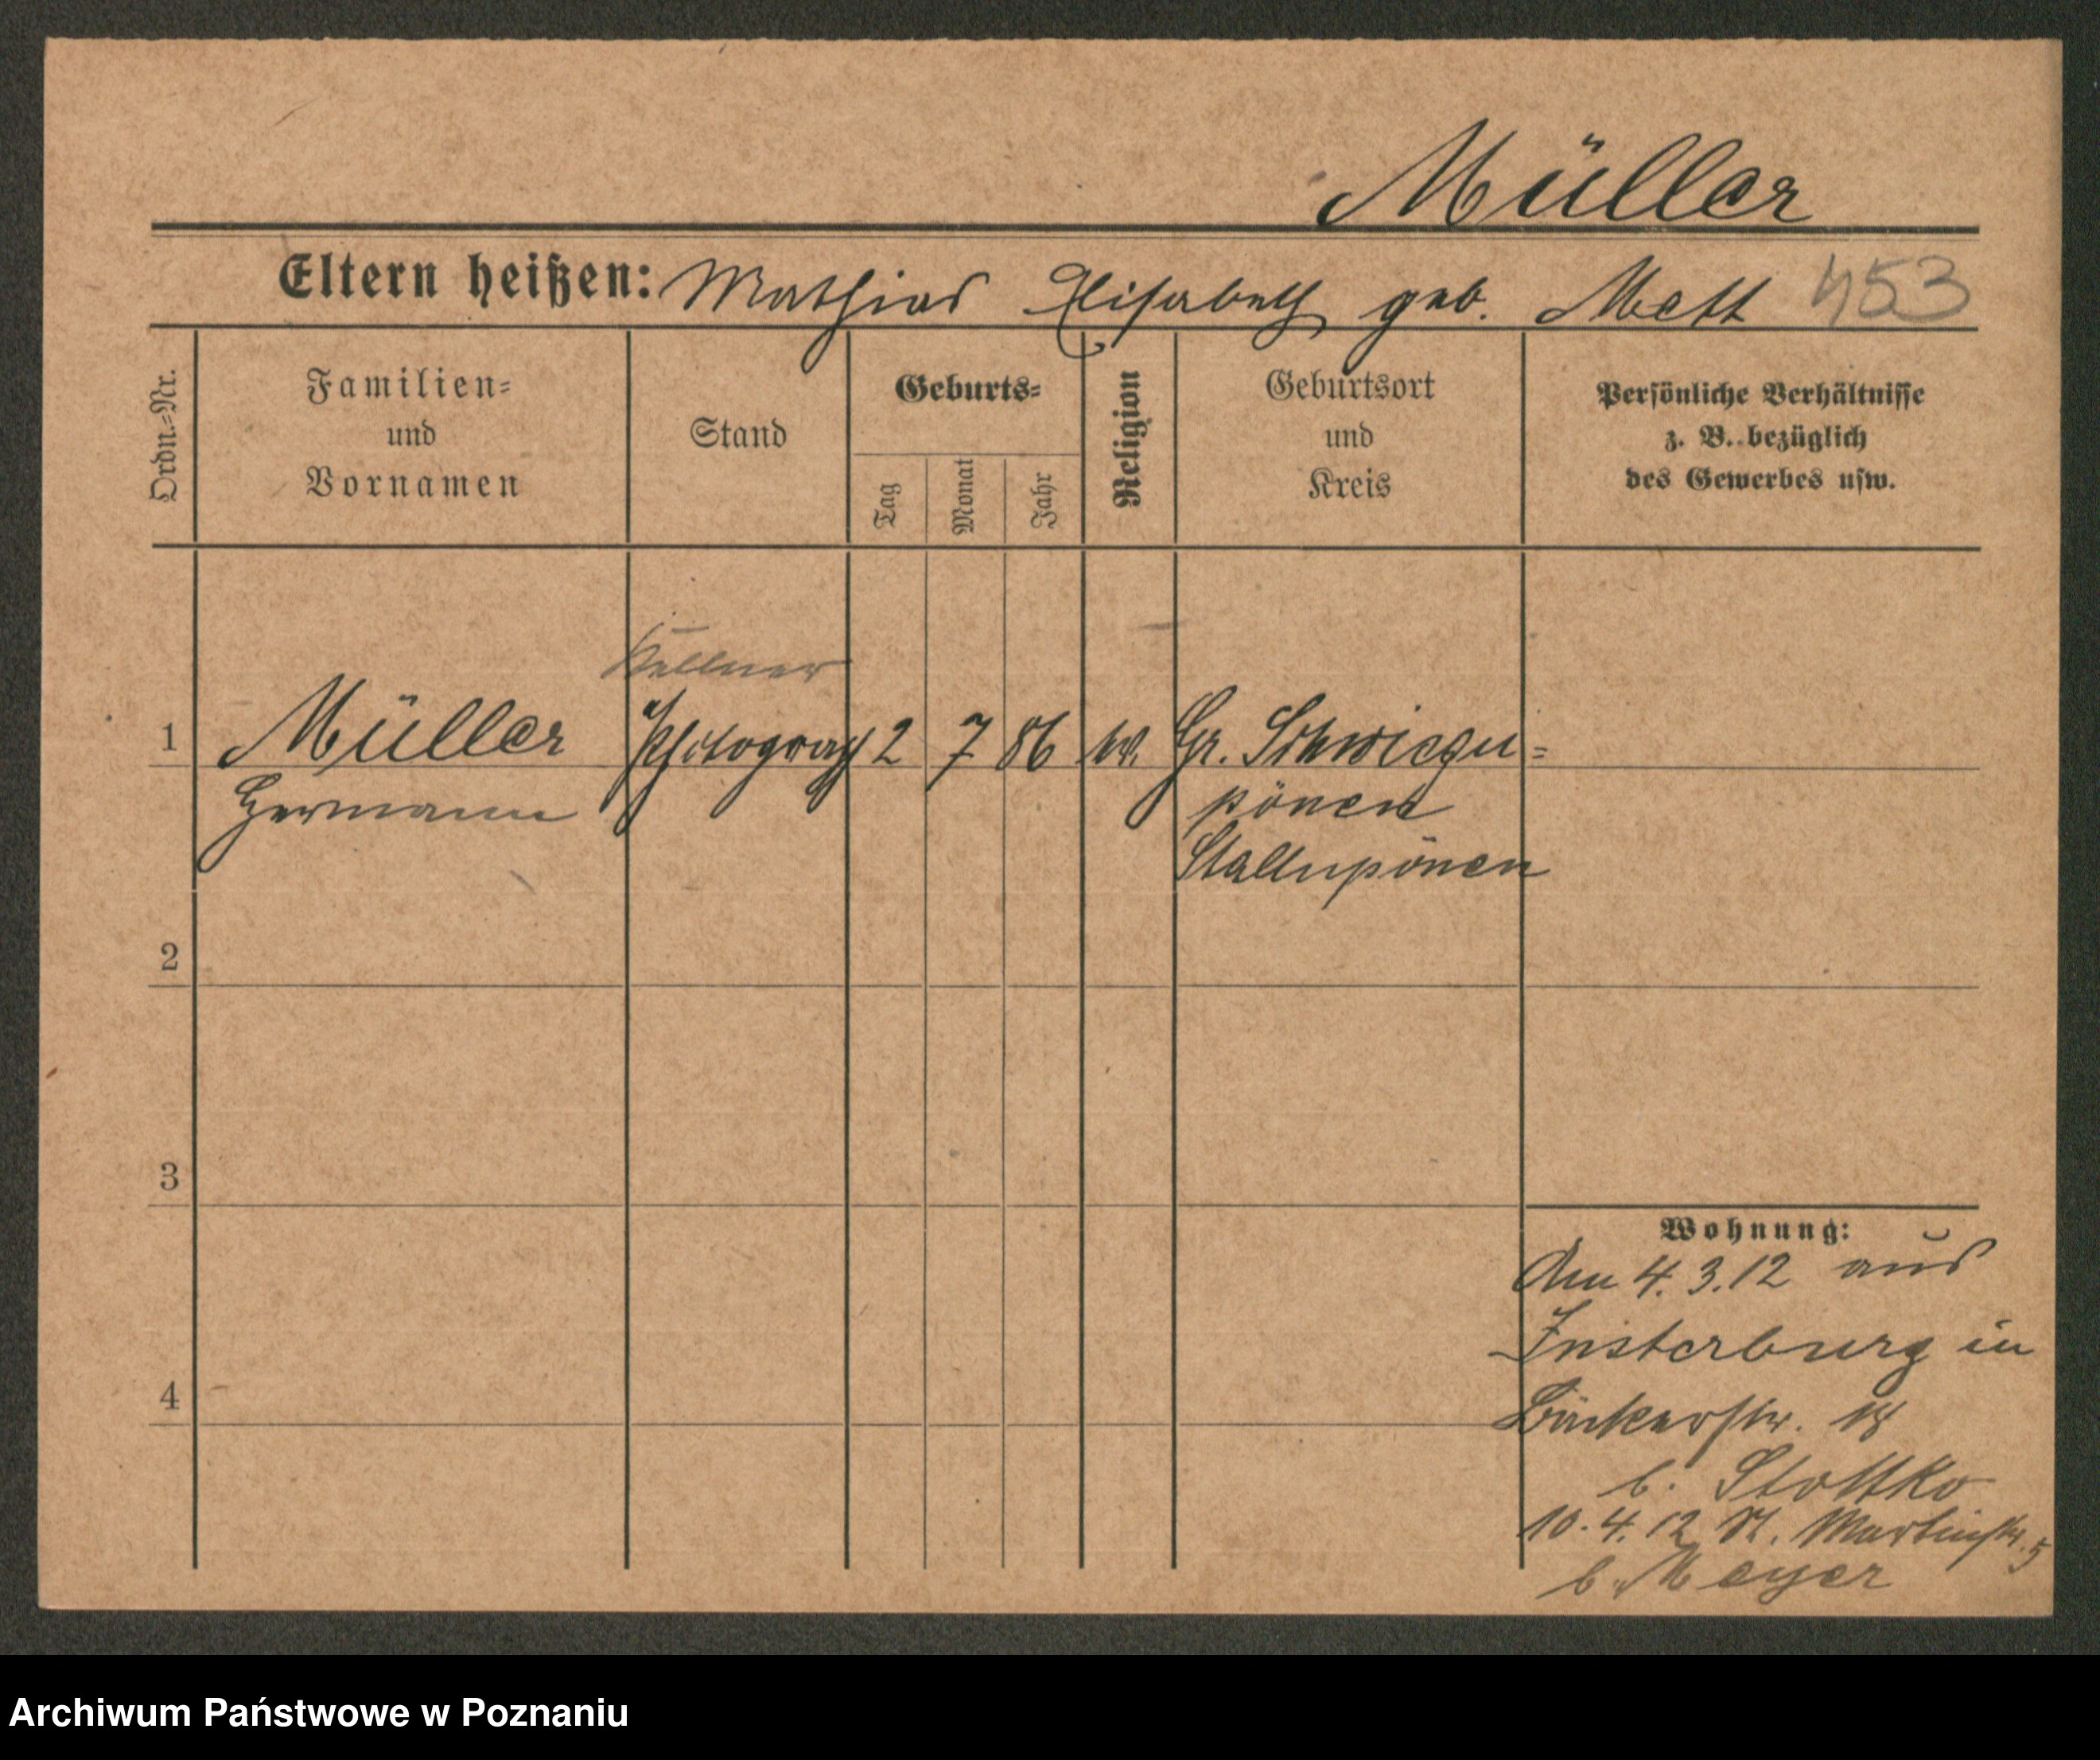 Müller
Eltern heißen: Mathias Elisabeth geb. Mett 453
Ordn.=Nr.
Familien=
und
Vornamen
Stand
Geburts=
Tag
Monat
Jahr
Religion
Geburtsort
und
Kreis
Persönliche Verhältnisse
z. B. bezüglich
des Gewerbes usw.
Kellner
1 Müller Photograph 2 7 86 Gr. Schwiegu=
Hermann pönen
Stallupönen
2
3
Wohnung:
Am 4.3.12 aus
Insterburg in
4
Bäckerstr. 18
b. Stottko
10.4.12 St. Martinstr. 5
b. Meyer
Archiwum Państwowe w Poznaniu